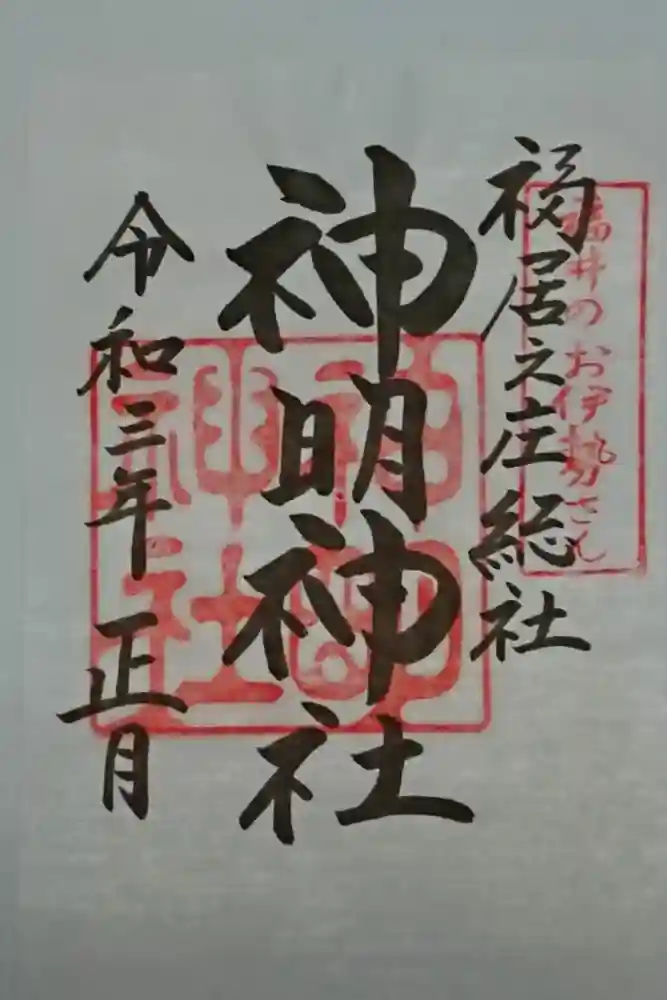 福居之庄総社
福井のお伊勢さん
神明神社
神明神社
令和三年 正月